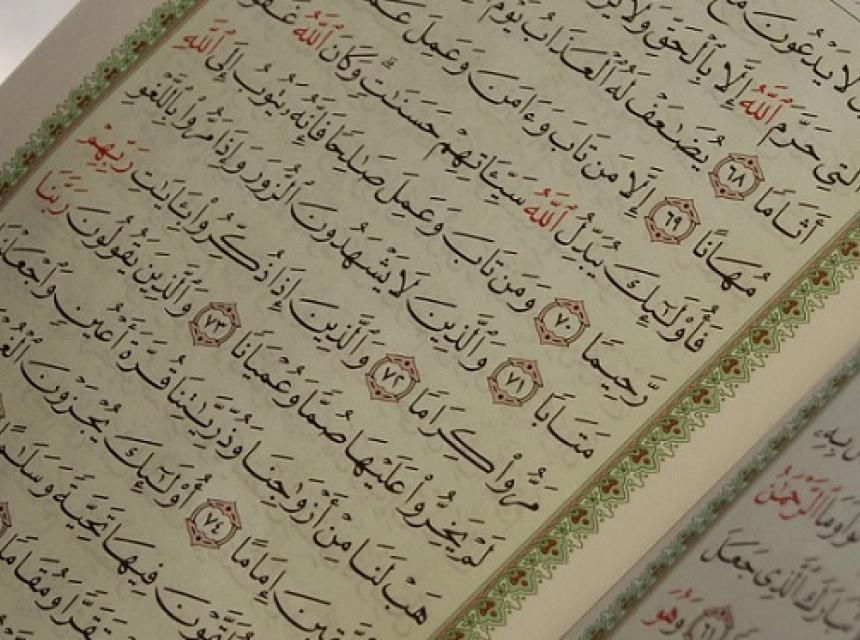 لَا يَدْعُونَ مَعَ
ٱلَّتِي حَرَّمَ ٱللَّهُ إِلَّا بِٱلْحَقِّ وَلَا
أَثَامًا ٦٨ يُضَٰعَفْ لَهُ ٱلْعَذَابُ يَوْمَ
مُهَانًا ٦٩ إِلَّا مَن تَابَ وَءَامَنَ وَعَمِلَ
فَأُو۟لَٰٓئِكَ يُبَدِّلُ ٱللَّهُ سَيِّـَٔاتِهِمْ حَسَنَٰتٍ ۗ وَكَانَ ٱللَّهُ
رَّحِيمًا ٧٠ وَمَن تَابَ وَعَمِلَ صَٰلِحًا فَإِنَّهُۥ يَتُوبُ إِلَى ٱللَّهِ
مَتَابًا ٧١ وَٱلَّذِينَ لَا يَشْهَدُونَ ٱلزُّورَ وَإِذَا مَرُّوا۟ بِٱللَّغْوِ
مَرُّوا۟ كِرَامًا ٧٢ وَٱلَّذِينَ إِذَا ذُكِّرُوا۟ بِـَٔايَٰتِ رَبِّهِمْ
لَمْ يَخِرُّوا۟ عَلَيْهَا صُمًّا وَعُمْيَانًا ٧٣ وَٱلَّذِينَ يَقُولُونَ رَبَّنَا
هَبْ لَنَا مِنْ أَزْوَٰجِنَا وَذُرِّيَّٰتِنَا قُرَّةَ أَعْيُنٍ وَٱجْعَلْنَا
إِمَامًا ٧٤ أُو۟لَٰٓئِكَ يُجْزَوْنَ
فِيهَا تَحِيَّةً وَسَلَٰمًا
وَمُقَامًا
ٱلرَّحْمَٰنُ
ٱلَّذِى جَعَلَ
٦١ وَهُوَ